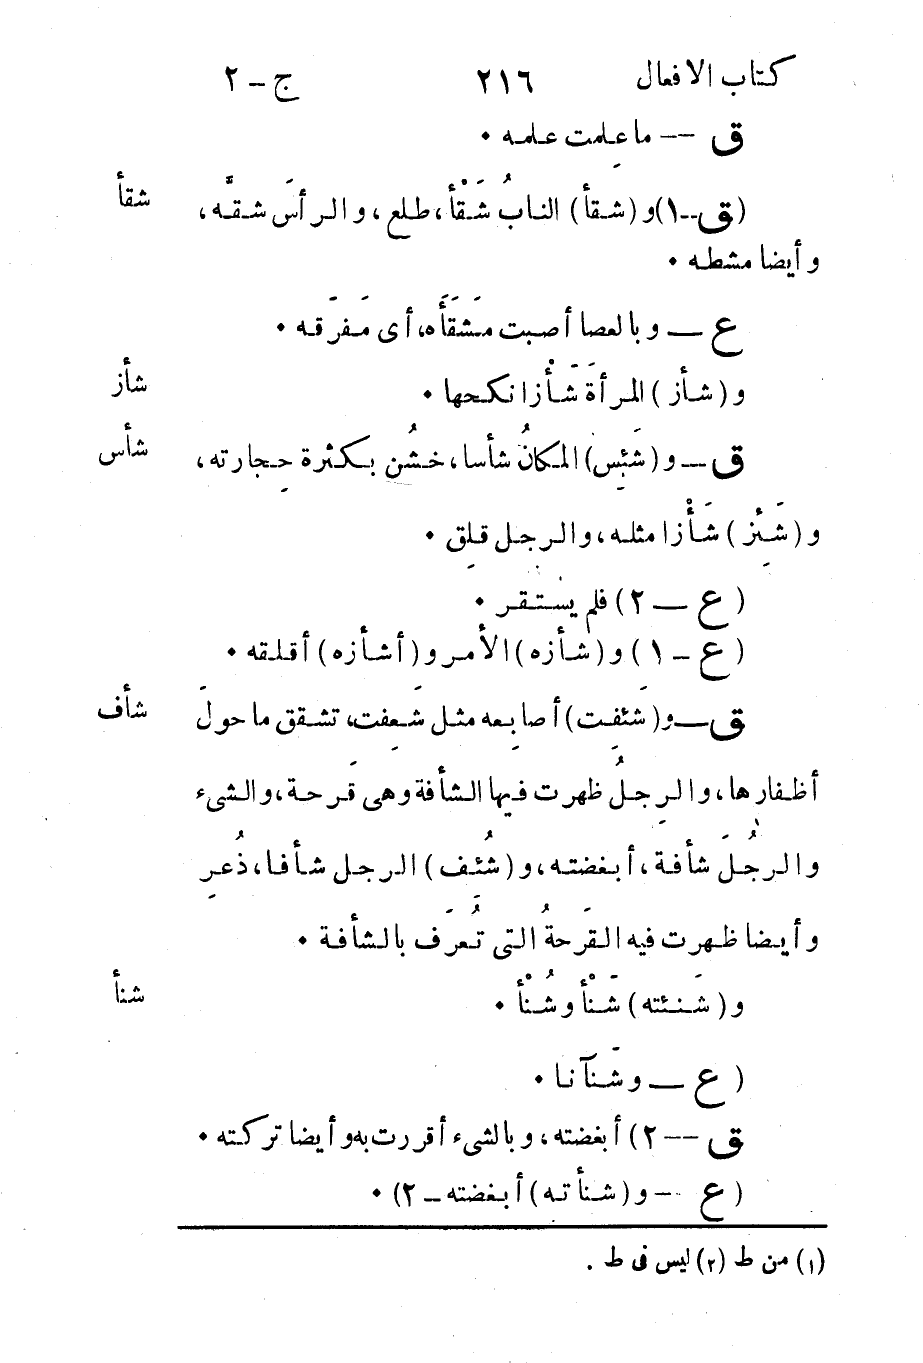 كتاب الافعال ٢١٦ ج – ٢
ق –– ما عِلمت علمه •
(ق--١) و (شقأ) النابُ شَقْأً، طلع، والرأسَ شقَّه، شقأ
وأيضا مشطه •
ع — وبالعصا أصبت مَشَقَأَه، أى مَفرَقه •
و (شأز) المرأةَ شَأْزا نكحها • شأز
ق — و (شَئِس) المكانُ شأسا، خشُن بكثرة حِجارته، شأس
و (شَئِز) شَأْزا مثله، والرجل قلِق •
(ع — ٢) فلم يستقر •
(ع – ١) و (شأزه) الأمر و (أشأزه) أقلقه •
ق — و (شَئِفت) أصابِعه مثل شَعِفت، تشقق ما حولَ شأف
أظفارها، والرجلُ ظهرت فيها الشأفة وهى قَرحة، والشىء
والرجُلَ شأفة، أبغضته، و (شُئِف) الرجل شأفا، ذُعرِ
وأيضا ظهرت فيه القَرحةُ التى تُعرَف بالشأفة •
و (شَنئته) شَنْأً وشُنْأً • شنأ
(ع — وشَنآنا •
ق –– ٢) أبغضته، وبالشىء أقررت به وأيضا تركته •
(ع –– و (شنأته) أبغضته – ٢) •
(١) من ط (٢) ليس فى ط .